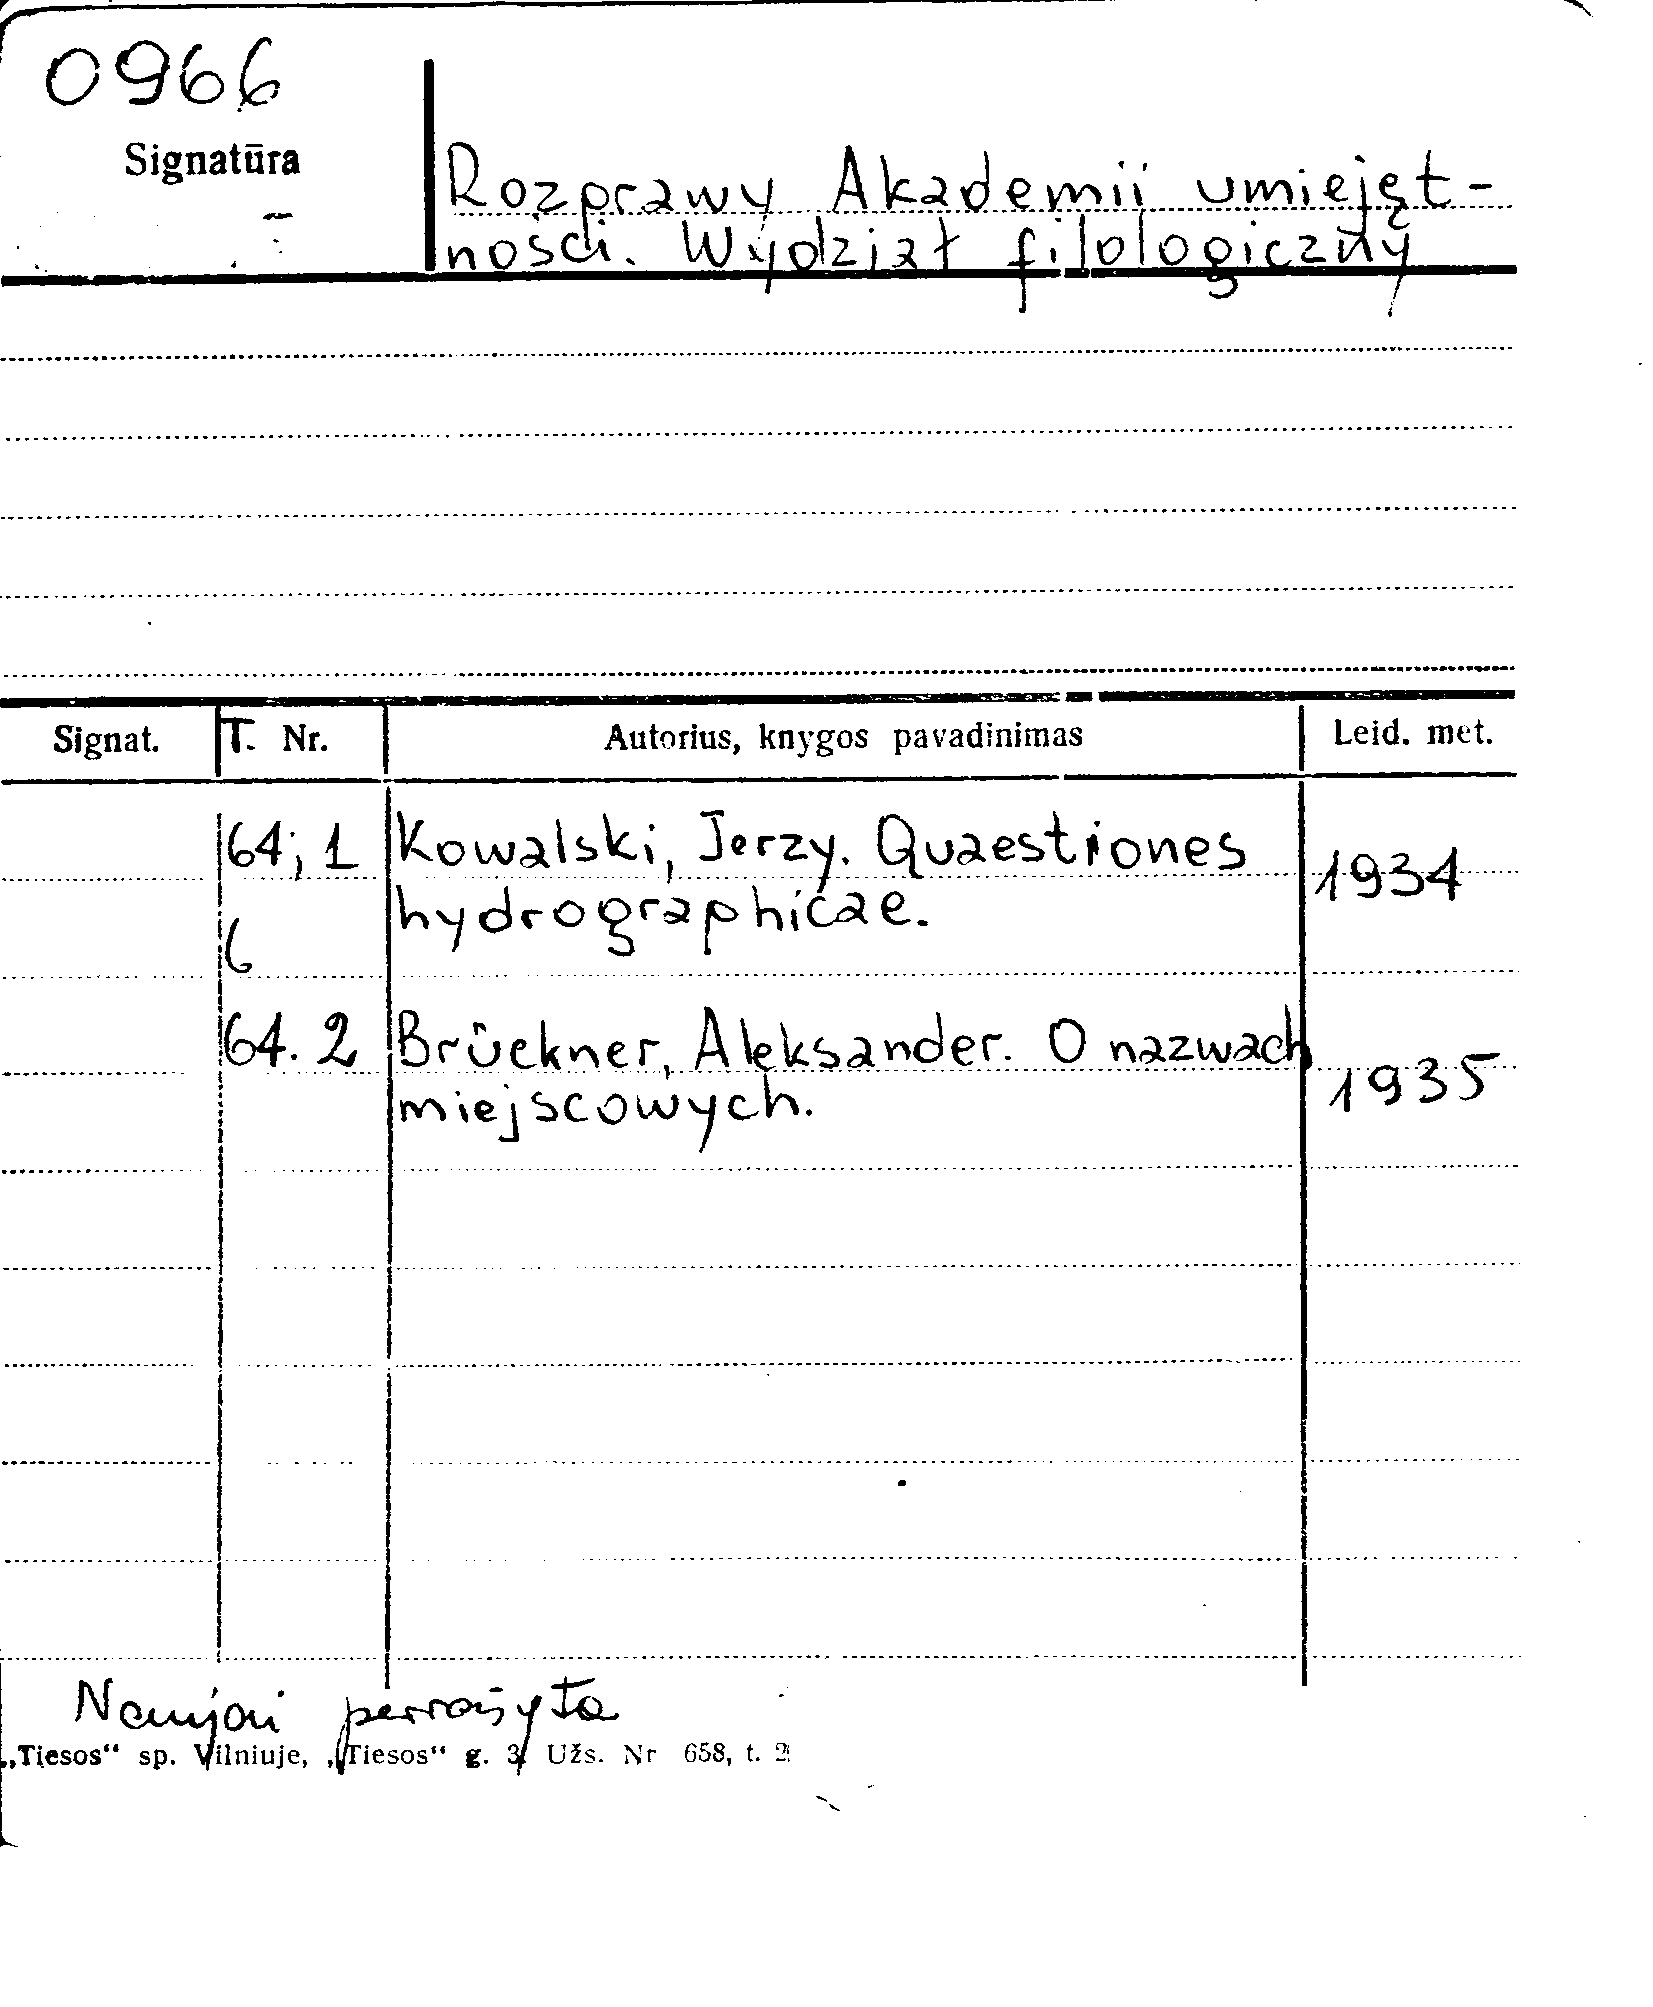 0966
Signatūra
Rozprawy Akademii umiejęt-
ności. Wydział filologiczny
Signat. T. Nr. Autorius, knygos pavadinimas Leid. met.
64; 1 Kowalski, Jerzy. Quaestiones 1934
hydrographicae.
6
64. 2 Brückner, Aleksander. O nazwach 1935
miejscowych.
Naujai perrašyta
„Tiesos“ sp. Vilniuje, „Tiesos“ g. 3. Užs. Nr 658, t. 2